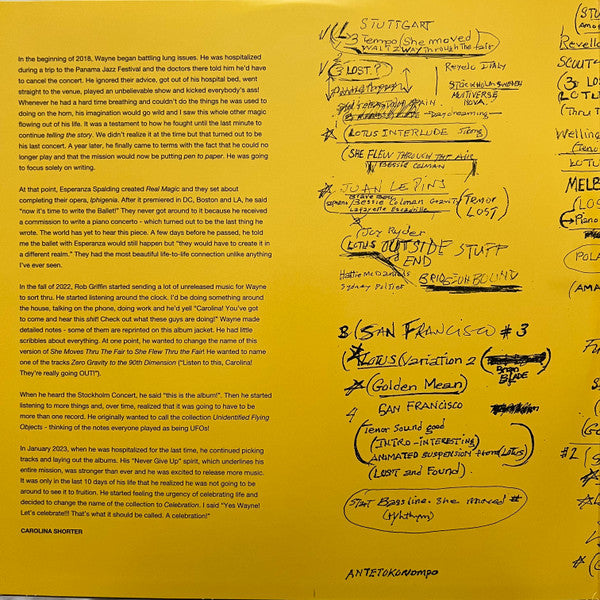 In the beginning of 2018, Wayne began battling lung issues. He was hospitalized
during a trip to the Panama Jazz Festival and the doctors there told him he'd have
to cancel the concert. He ignored their advice, got out of his hospital bed, went
straight to the venue, played an unbelievable show and kicked everybody's ass!
Whenever he had a hard time breathing and couldn't do the things he was used to
doing on the horn, his imagination would go wild and I saw this whole other magic
flowing out of his life. It was a testament to how he fought until the last minute to
continue telling the story. We didn't realize it at the time but that turned out to be
his last concert. A year later, he finally came to terms with the fact that he could no
longer play and that the mission would now be putting pen to paper. He was going
to focus solely on writing.
At that point, Esperanza Spalding created Real Magic and they set about
completing their opera, Iphigenia. After it premiered in DC, Boston and LA, he said
"now it's time to write the Ballet!" They never got around to it because he received
a commission to write a piano concerto - which turned out to be the last thing he
wrote. The world has yet to hear this piece. A few days before he passed, he told
me the ballet with Esperanza would still happen but "they would have to create it in
a different realm." They had the most beautiful life-to-life connection unlike anything
I've ever seen.
In the fall of 2022, Rob Griffin started sending a lot of unreleased music for Wayne
to sort thru. He started listening around the clock. I'd be doing something around
the house, talking on the phone, doing work and he'd yell "Carolina! You've got to
come and hear this shit! Check out what these guys are doing!" Wayne made
detailed notes - some of them are reprinted on this album jacket. He had little
scribbles about everything. At one point, he wanted to change the name of this
version of She Moves Thru The Fair to She Flew Thru the Fair! He wanted to name
one of the tracks Zero Gravity to the 90th Dimension ("Listen to this, Carolina!
They're really going OUT!").
When he heard the Stockholm Concert, he said "this is the album!". Then he started
listening to more things and, over time, realized that it was going to have to be
more than one record. He originally wanted to call the collection Unidentified Flying
Objects - thinking of the notes everyone played as being UFOs!
In January 2023, when he was hospitalized for the last time, he continued picking
tracks and laying out the albums. His "Never Give Up" spirit, which underlines his
entire mission, was stronger than ever and he was excited to release more music.
It was only in the last 10 days of his life that he realized he was not going to be
around to see it to fruition. He started feeling the urgency of celebrating life and
decided to change the name of the collection to Celebration. I said "Yes Wayne!
Let's celebrate!!! That's what it should be called. A celebration!"
CAROLINA SHORTER
STUTTGART
3 Tempo (She moved)
WALTZWAY through the fair
(3 LOST.?)
Revelo Italy
STOCKHOLM SWEDEN
MULTIVERSE
NOVA.
Daydreaming
(LOTUS INTERLUDE Strong)
(SHE FLEW THROUGH THE AIR
BESSIE COLMAN
JUAN LE PINS
Bessie Colman
Lafayette
(TENOR
LOST)
(Joy Ryder
(LOTUS OUTSIDE STUFF
END
Hattie McDaniels
Sydney Poitier
BRIDGETON BOUND
B (SAN FRANCISCO #3
(LOTUS (Variation 2
Brian
BLADE
(Golden Mean)
4 SAN FRANCISCO
Tenor Sound good
(INTRO-INTERESTING)
ANIMATED SUSPENSION
(LOTUS)
(LOST and Found)
START Bassline. She moved #
(Rhythym)
ANTETOKONOMPO
(STU
Revello
(3 LOS
LOTU
(Thru T
Welling
LOTU
MELB
(LOS
Piano
(POLA
(AMA
#2